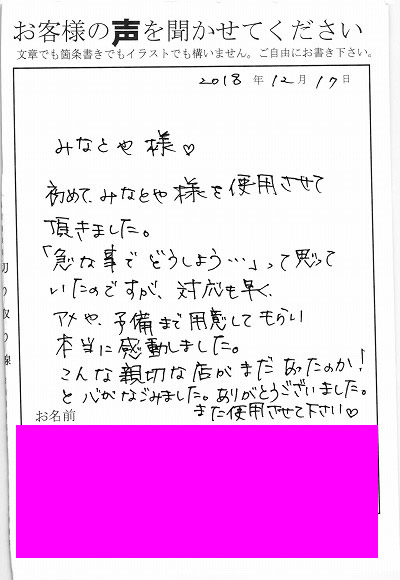 お客様の声を聞かせてください
文章でも箇条書きでもイラストでも構いません。ご自由にお書き下さい。
2018年12月17日
みなとや様♡
初めて、みなとや様を使用させて
頂きました。
「急な事でどうしよう…」って思って
いたのですが、対応も早く、
アメや、予備まで用意してもらい
本当に感動しました。
こんな親切な店がまだあったのか!
と心がなごみました。ありがとうございました。
また使用させて下さい♡
お名前
切り取り線